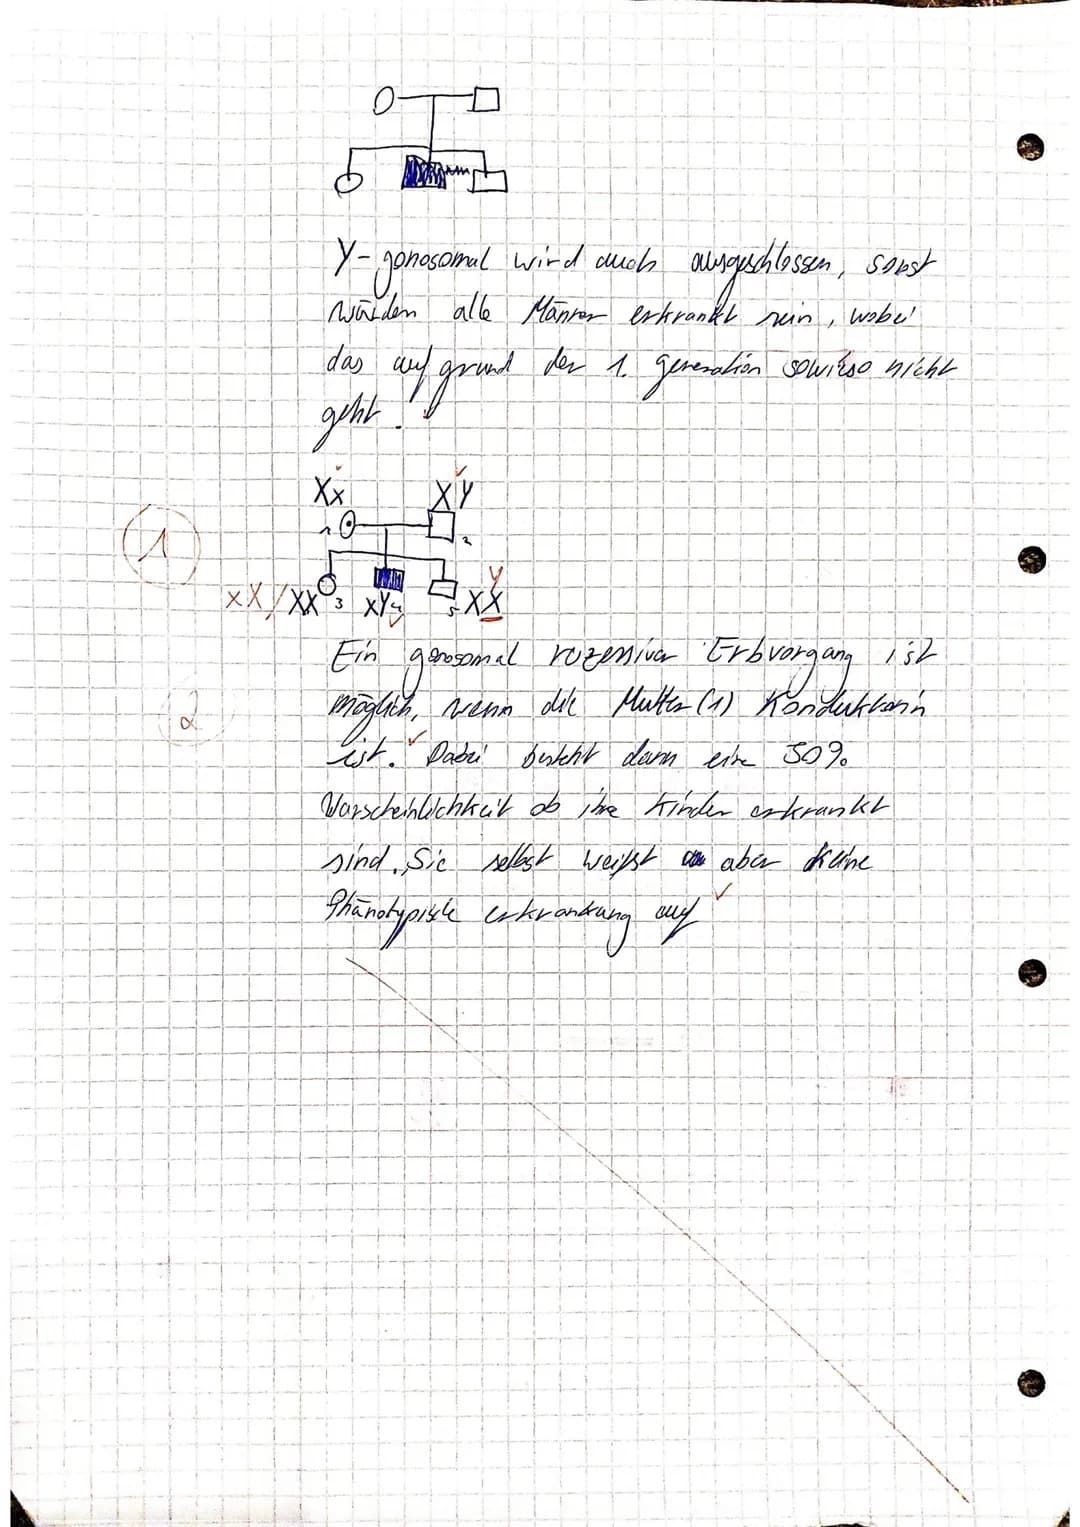 Y-gonosomal wird auch ausgeschlossen, sonst
würden alle Männer erkrankt sein, wobei
das aufgrund der 1. generation sowieso nicht
geht.
Xx XY
1 2
1
xX/XX 3 xY 4 5 XX Y
Ein gonosomal rezessiver Erbvorgang ist
möglich, wenn die Mutter (1) Konduktorin
2
ist. Dabei besteht dann eine 50%
Warscheinlichkeit ob ihre Kinder erkrankt
sind. Sie selbst weißt aber keine
Phänotypische erkrankung auf